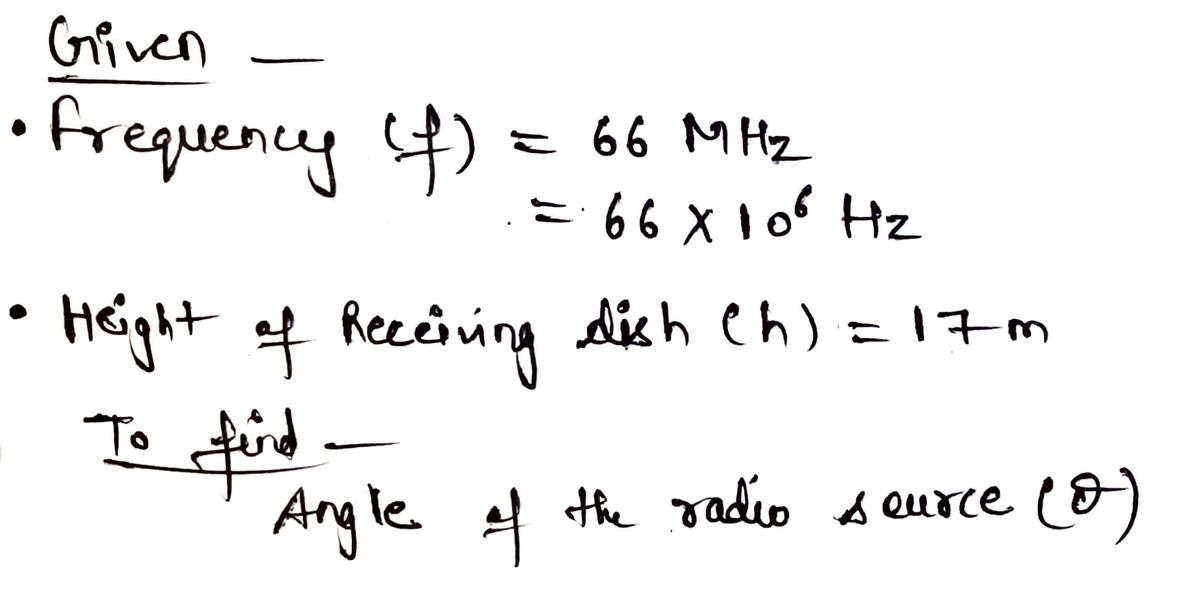 Given —
• Frequency (f) = 66 MHz
= 66 X 10⁶ Hz
• Height of Receiving dish (h) = 17m
To find —
Angle of the radio source (θ)